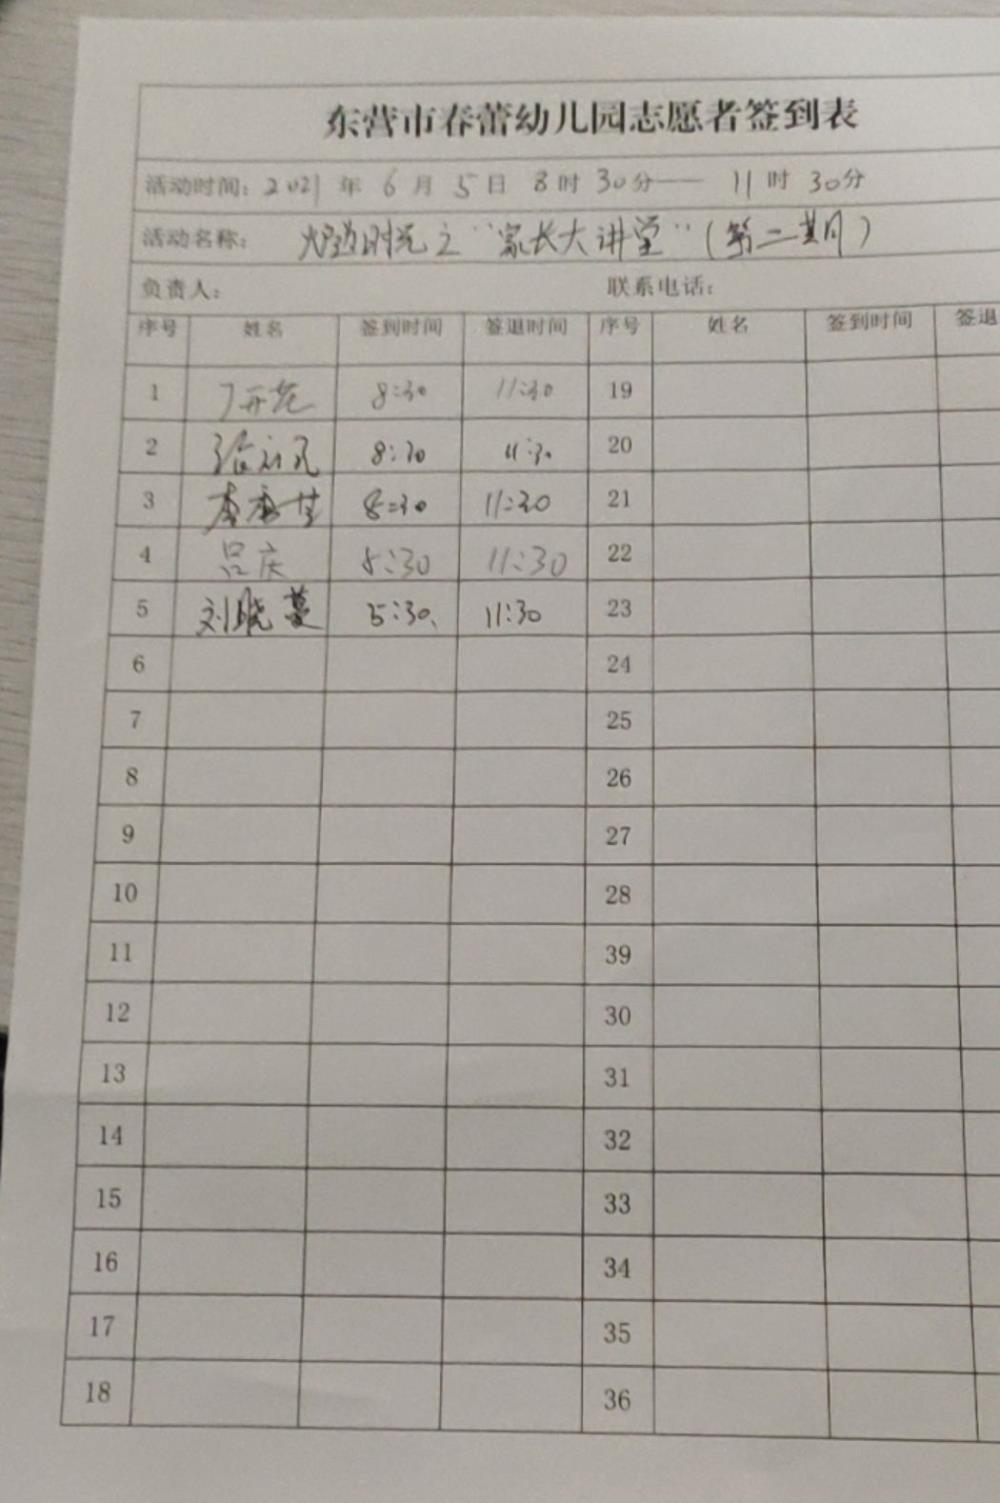 东营市春蕾幼儿园志愿者签到表
活动时间: 2021 年 6 月 5 日 8 时 30 分—— 11 时 30 分
活动名称: 时光之"家长大讲堂"(第二期)
负责人: 联系电话:
序号 姓名 签到时间 签退时间 序号 姓名 签到时间 签退
1 丁开花 8:30 11:30 19
2 8:30 11:30 20
3 8:30 11:30 21
4 吕庆 8:30 11:30 22
5 刘晓蔓 8:30、 11:30 23
6 24
7 25
8 26
9 27
10 28
11 39
12 30
13 31
14 32
15 33
16 34
17 35
18 36